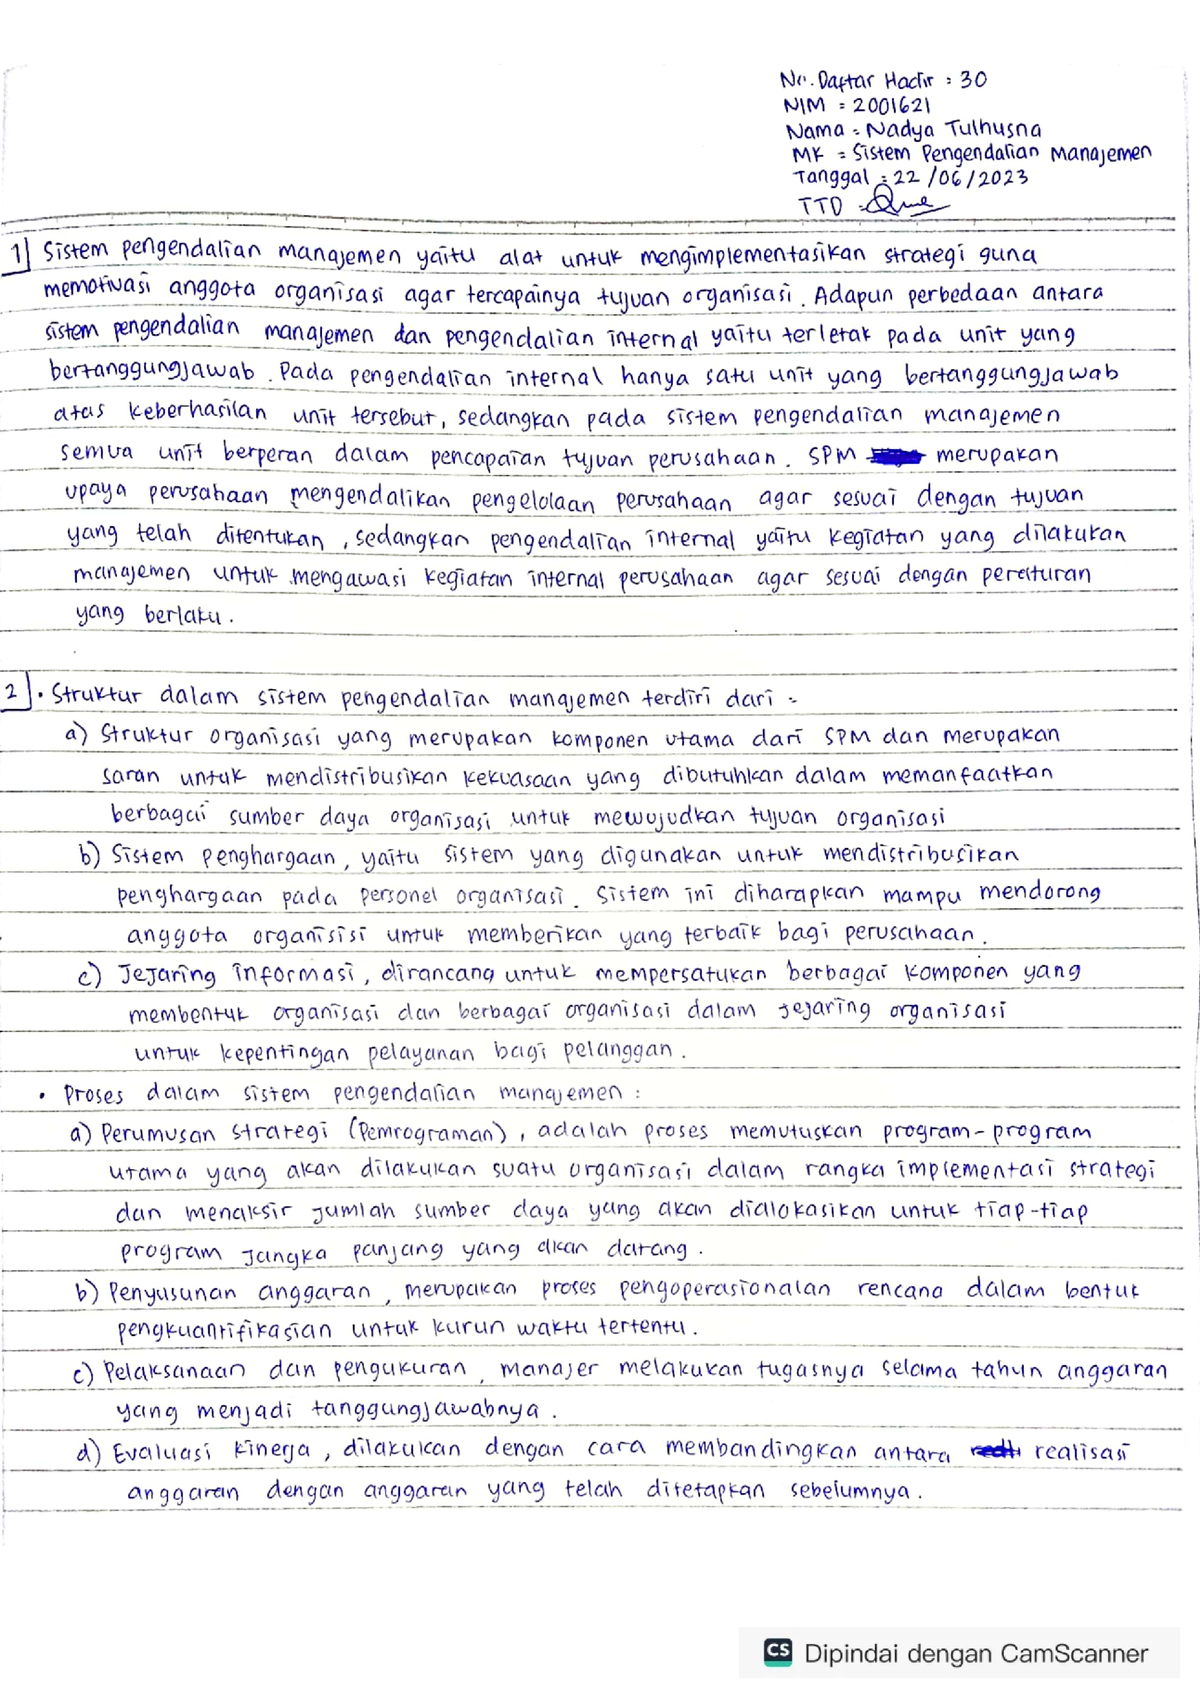 No. Daftar Hadir : 30
NIM : 2001621
Nama : Nadya Tulhusna
MK : Sistem Pengendalian Manajemen
Tanggal : 22/06/2023
TTD :
1 Sistem pengendalian manajemen yaitu alat untuk mengimplementasikan strategi guna
memotivasi anggota organisasi agar tercapainya tujuan organisasi. Adapun perbedaan antara
sistem pengendalian manajemen dan pengendalian internal yaitu terletak pada unit yang
bertanggungjawab. Pada pengendalian internal hanya satu unit yang bertanggungjawab
atas keberhasilan unit tersebut, sedangkan pada sistem pengendalian manajemen
semua unit berperan dalam pencapaian tujuan perusahaan. SPM merupakan
upaya perusahaan mengendalikan pengelolaan perusahaan agar sesuai dengan tujuan
yang telah ditentukan, sedangkan pengendalian internal yaitu kegiatan yang dilakukan
manajemen untuk mengawasi kegiatan internal perusahaan agar sesuai dengan peraturan
yang berlaku.
2 • Struktur dalam sistem pengendalian manajemen terdiri dari :
a) Struktur organisasi yang merupakan komponen utama dari SPM dan merupakan
saran untuk mendistribusikan kekuasaan yang dibutuhkan dalam memanfaatkan
berbagai sumber daya organisasi untuk mewujudkan tujuan organisasi
b) Sistem penghargaan, yaitu sistem yang digunakan untuk mendistribusikan
penghargaan pada personel organisasi. Sistem ini diharapkan mampu mendorong
anggota organisisi untuk memberikan yang terbaik bagi perusahaan.
c) Jejaring informasi, dirancang untuk mempersatukan berbagai komponen yang
membentuk organisasi dan berbagai organisasi dalam jejaring organisasi
untuk kepentingan pelayanan bagi pelanggan.
• Proses dalam sistem pengendalian manajemen :
a) Perumusan strategi (Pemrograman), adalah proses memutuskan program-program
utama yang akan dilakukan suatu organisasi dalam rangka implementasi strategi
dan menaksir jumlah sumber daya yang akan dialokasikan untuk tiap-tiap
program jangka panjang yang akan datang.
b) Penyusunan anggaran, merupakan proses pengoperasionalan rencana dalam bentuk
pengkuantifikasian untuk kurun waktu tertentu.
c) Pelaksanaan dan pengukuran, manajer melakukan tugasnya selama tahun anggaran
yang menjadi tanggungjawabnya.
d) Evaluasi kinerja, dilakukan dengan cara membandingkan antara realisasi
anggaran dengan anggaran yang telah ditetapkan sebelumnya.
CS Dipindai dengan CamScanner